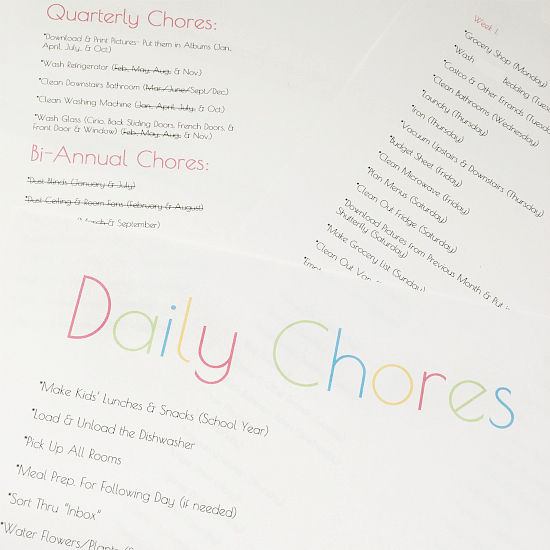 Quarterly Chores:
*Download & Print Pictures- Put them in Albums (Jan.,
April, July, & Oct.)
*Wash Refrigerator (Feb., May, Aug., & Nov.)
*Clean Downstairs Bathroom (Mar./June/Sept./Dec.)
*Clean Washing Machine (Jan., April, July, & Oct.)
*Wash Glass (Cirio, Back Sliding Doors, French Doors, &
Front Door & Window) (Feb., May, Aug., & Nov.)
Bi-Annual Chores:
*Dust Blinds (January & July)
*Dust Ceiling & Room Fans (February & August)
& September)
Week 1
*Grocery Shop (Monday)
*Wash Bedding
*Costco & Other Errands
*Clean Bathrooms (Wednesday)
*Laundry (Thursday)
*Iron (Thursday)
*Vacuum Upstairs & Downstairs (Thursday)
*Budget Sheet (Friday)
*Clean Microwave (Friday)
*Plan Menus (Saturday)
*Clean Out Fridge (Saturday)
*Download Pictures from Previous Month & Put
Shutterfly (Saturday)
*Make Grocery List (Sunday)
*Clean Out Van
Daily Chores
*Make Kids' Lunches & Snacks (School Year)
*Load & Unload the Dishwasher
*Pick Up All Rooms
*Meal Prep. For Following Day (if needed)
*Sort Thru "Inbox"
*Water Flowers/Plants